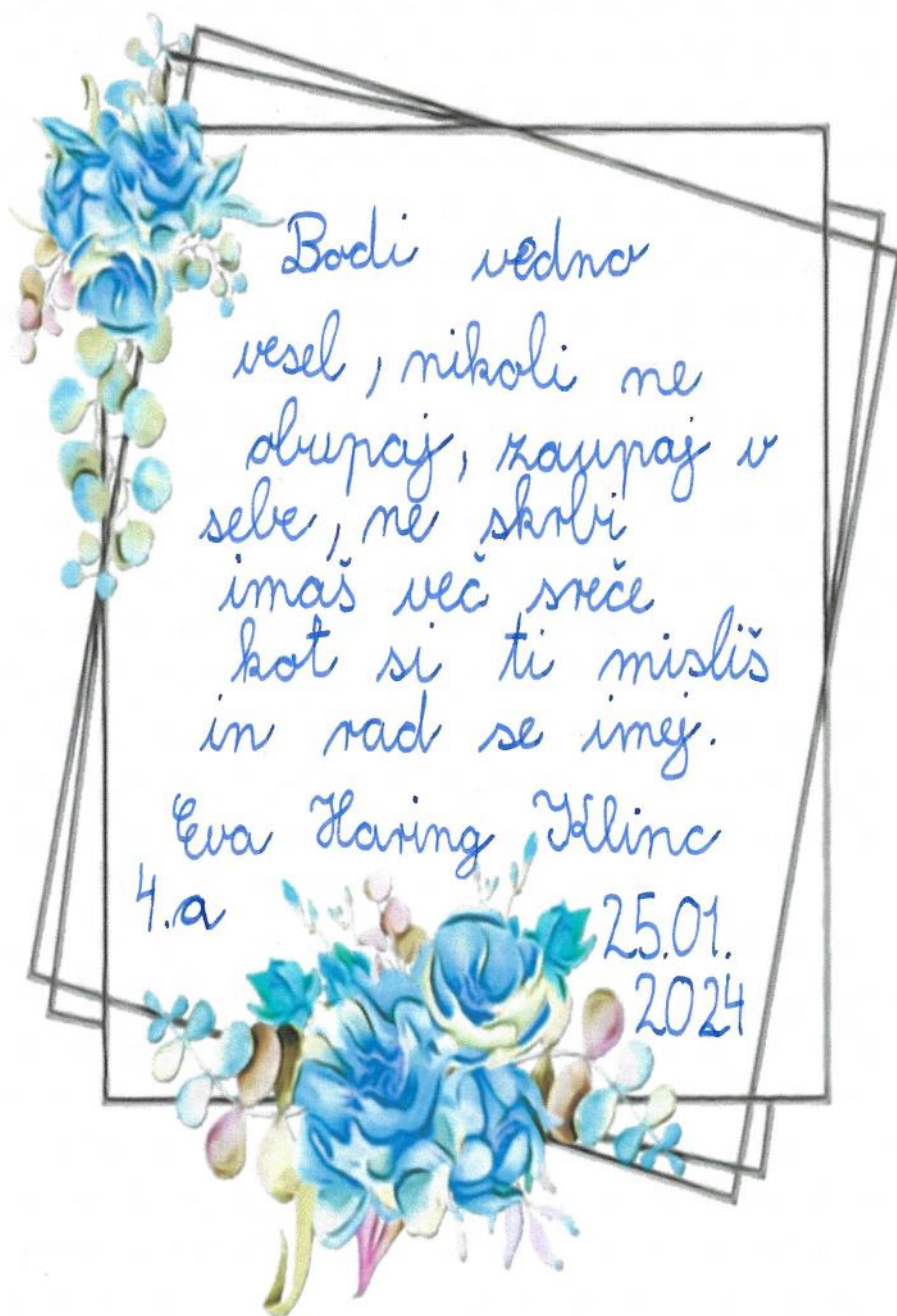 Bodi vedno
vesel, nikoli ne
obupaj, zaupaj v
sebe, ne skrbi
imaš več sreče
kot si ti misliš
in rad se imej.
Eva Haring Klinc
4.a
25.01.
2024